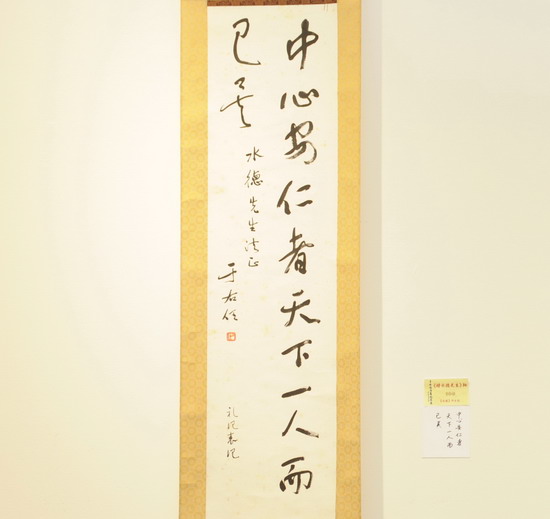 中心安仁者天下一人而
已矣
水德先生法正
于右任
礼记表记
中心安仁者
天下一人而
已矣